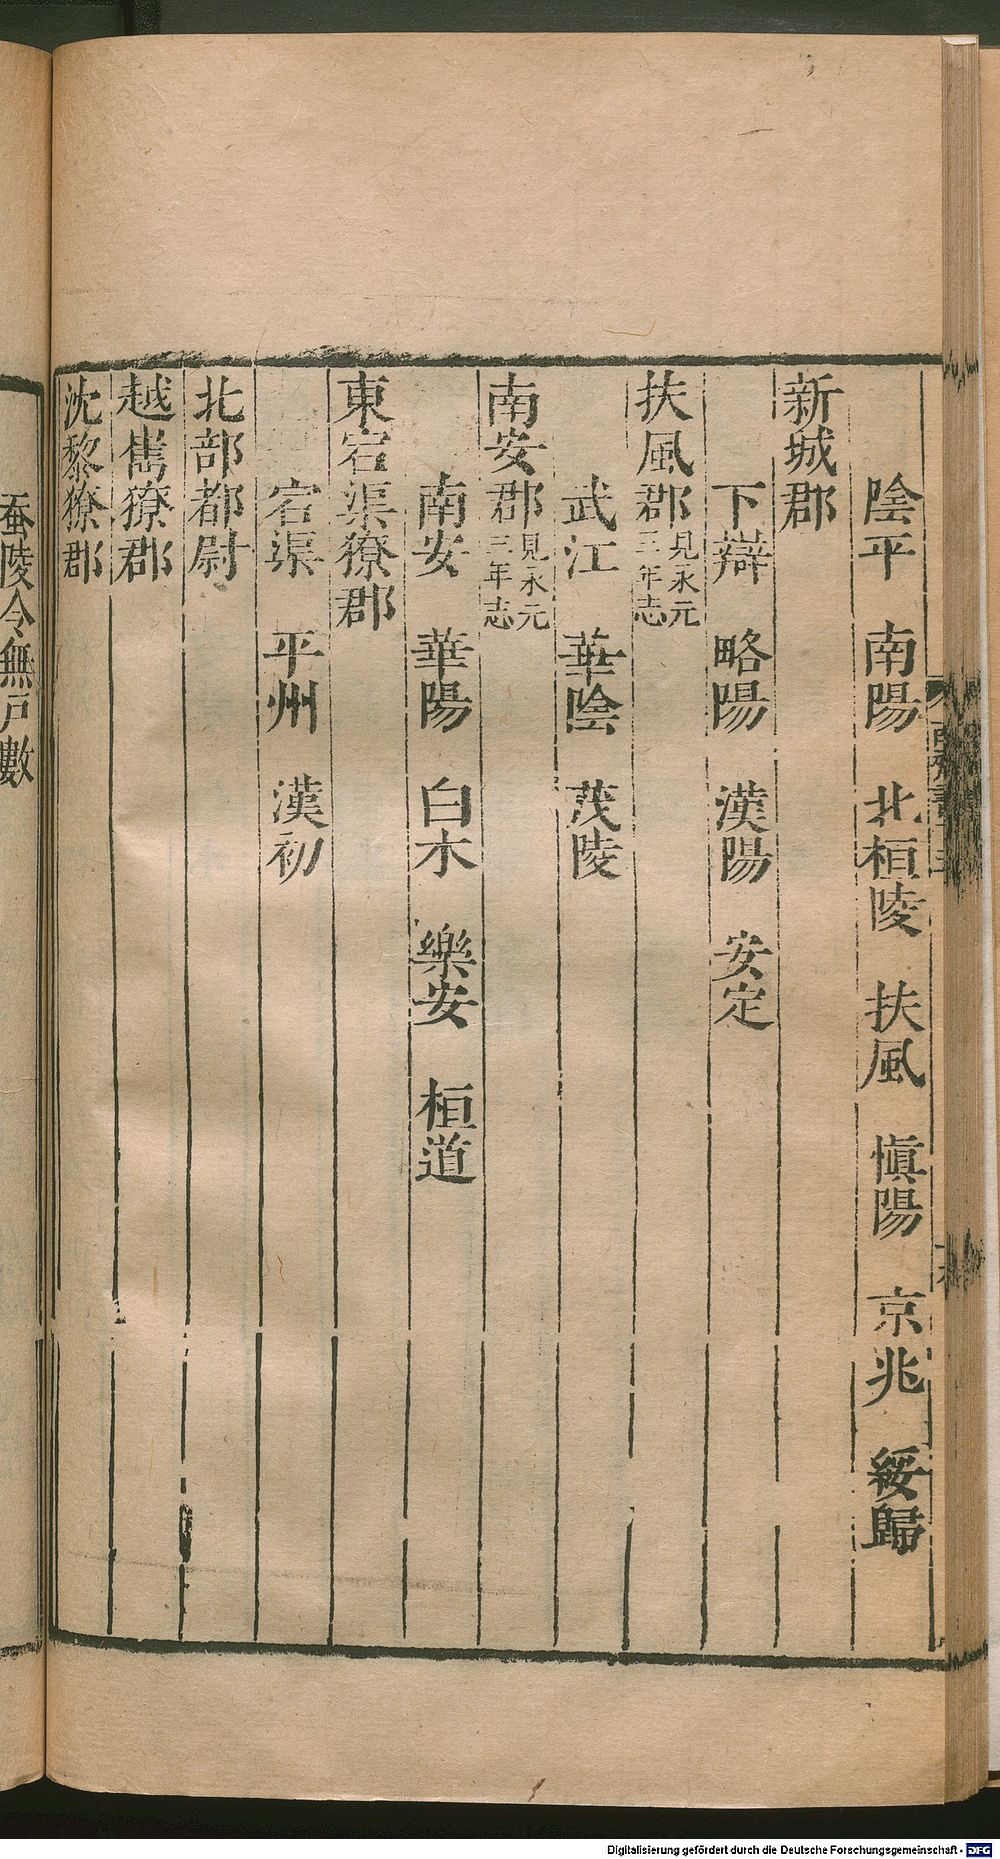 陰平　南陽　北桓陵　扶風　慎陽　京兆　綏歸
新城郡
下辯　略陽　漢陽　安定
扶風郡見永元三年志
武江　華陰　茂陵
南安郡見永元三年志
南安　華陽　白水　樂安　桓道
東宕渠獠郡
宕渠　平州　漢初
北部都尉
越嶲獠郡
沈黎獠郡
蚕陵令無戶數
Digitalisierung gefördert durch die Deutsche Forschungsgemeinschaft - DFG